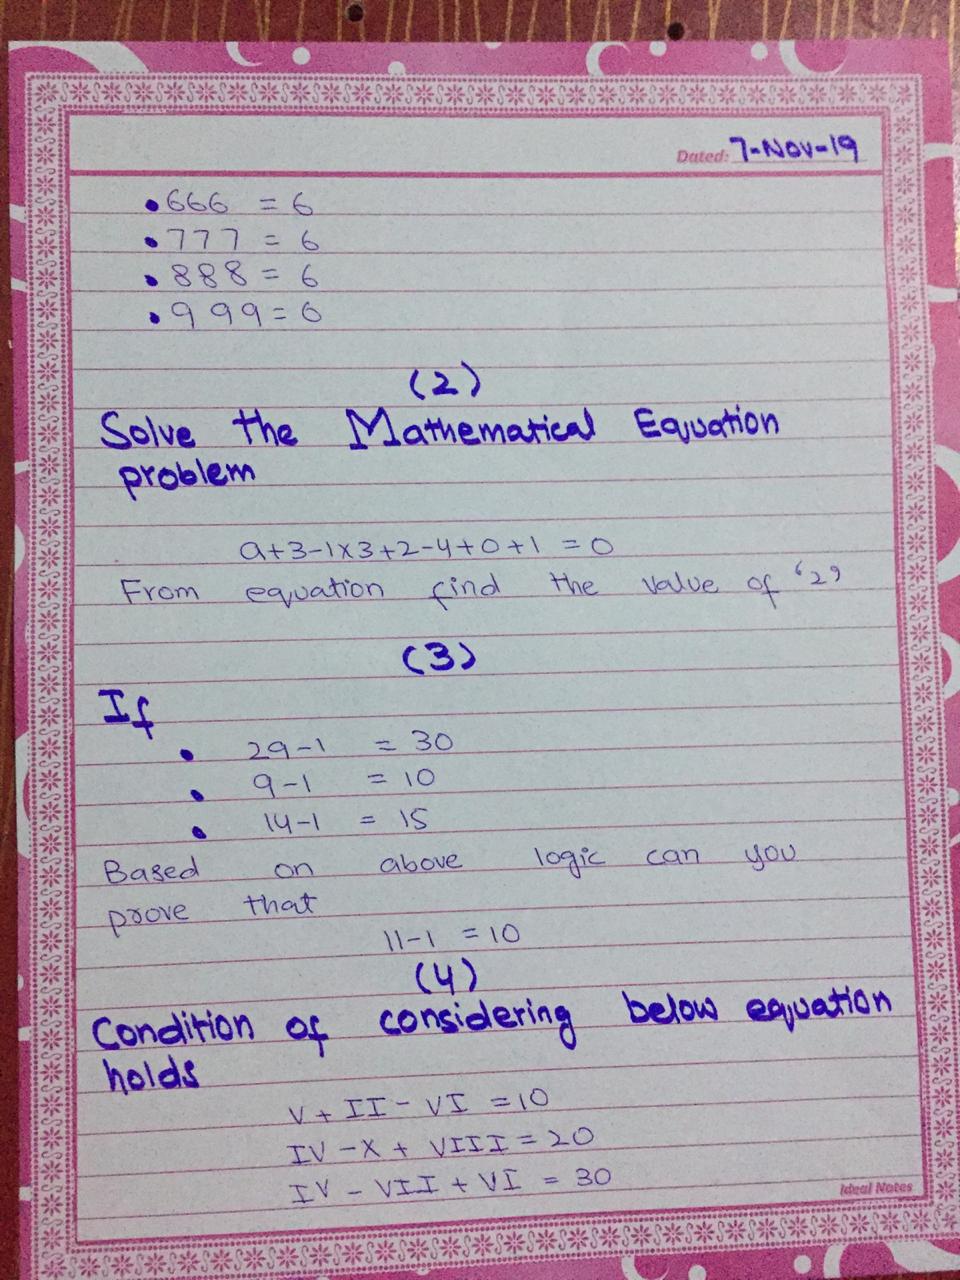 Dated: 7-Nov-19
• 666 = 6
• 777 = 6
• 888 = 6
• 999 = 6
(2)
Solve the Mathematical Equation
problem
a+3-1x3+2-4+0+1 = 0
From equation find the value of '2'
(3)
If
• 29-1 = 30
• 9-1 = 10
• 14-1 = 15
Based on above logic can you
prove that
11-1 = 10
(4)
Condition of considering below equation
holds
V + II - VI = 10
IV - X + VIII = 20
IV - VII + VI = 30
Ideal Notes